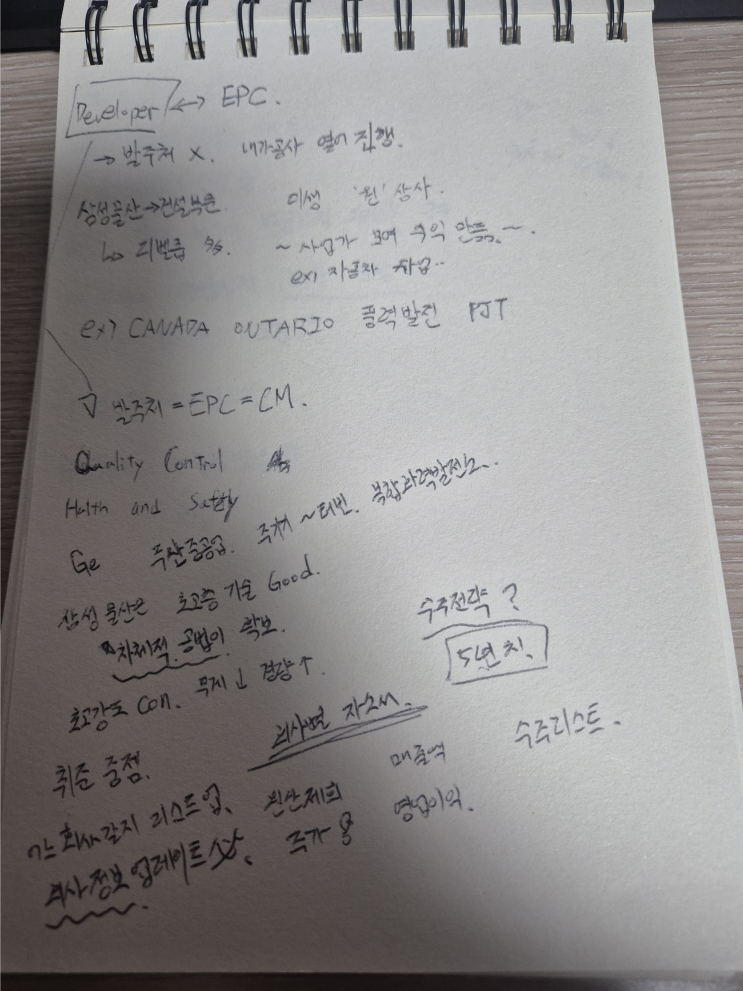 Developer ↔ EPC.
→ 발주처 X. 내가 공사 열어 진행.
삼성물산→건설부문 미생 '원' 상사.
↳ 디벨롭 ~ 사업가 모여 수익 만듦. ~.
ex) 자동차 사업..
ex) CANADA ONTARIO 풍력발전 PJT
▽ 발주처 = EPC = CM.
Quality Control
Helth and Safety
Ge 두산중공업. 주처 ~ 터빈. 복합화력발전소..
삼성물산은 초고층 기술 Good.
자체적 공법이 확보.
수주전략?
5년치.
초고강도 Con. 무게↓ 경량↑
취준 중점. 회사별 자소서.
각 회사같지 리스트업, 신산제희 매출액 수주리스트.
회사정보 업데이트, 주가 영업이익.